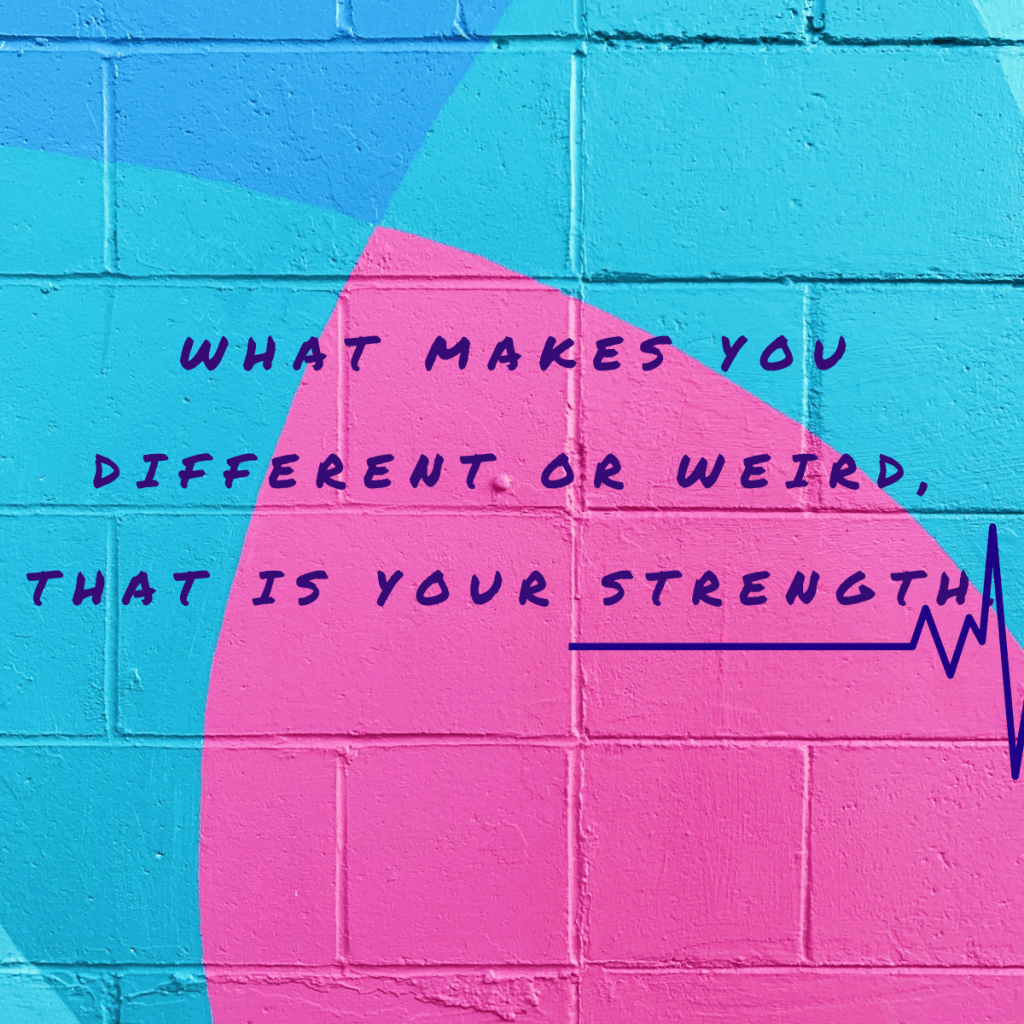 WHAT MAKES YOU
DIFFERENT OR WEIRD,
THAT IS YOUR STRENGTH.